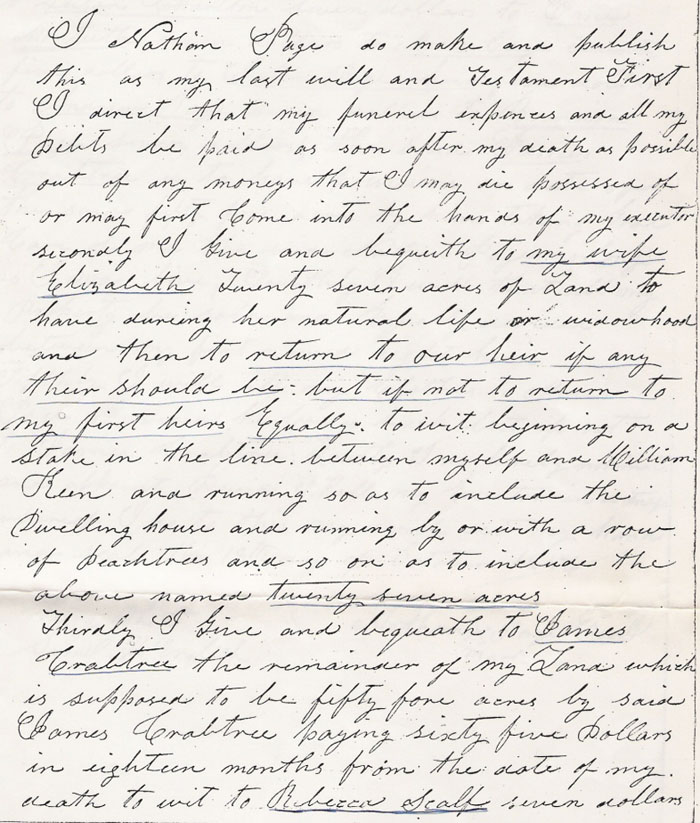 I Nathan Page do make and publish
this as my last will and Testament First
I direct that my funerel expences and all my
Debts be paid as soon after my death as possible
out of any moneys that I may die possessed of
or may first Come into the hands of my executor
secondly I Give and bequeith to my wife
Elizabeth Twenty seven acres of Land to
have dureing her natural life or widowhood
and then to return to our heir if any
their should be. but if not to return to
my first heirs Equally. to wit. beginning on a
Stake in the line between myself and William
Keen and running so as to include the
Dwelling house and running by or with a row
of Peachtrees and so on as to include the
above named twenty seven acres
Thirdly I Give and bequeath to James
Crabtree the remainder of my Land which
is supposed to be fifty fore acres by said
James Crabtree paying sixty five Dollars
in eighteen months from the date of my
death to wit to Rebecca Scalf seven dollars